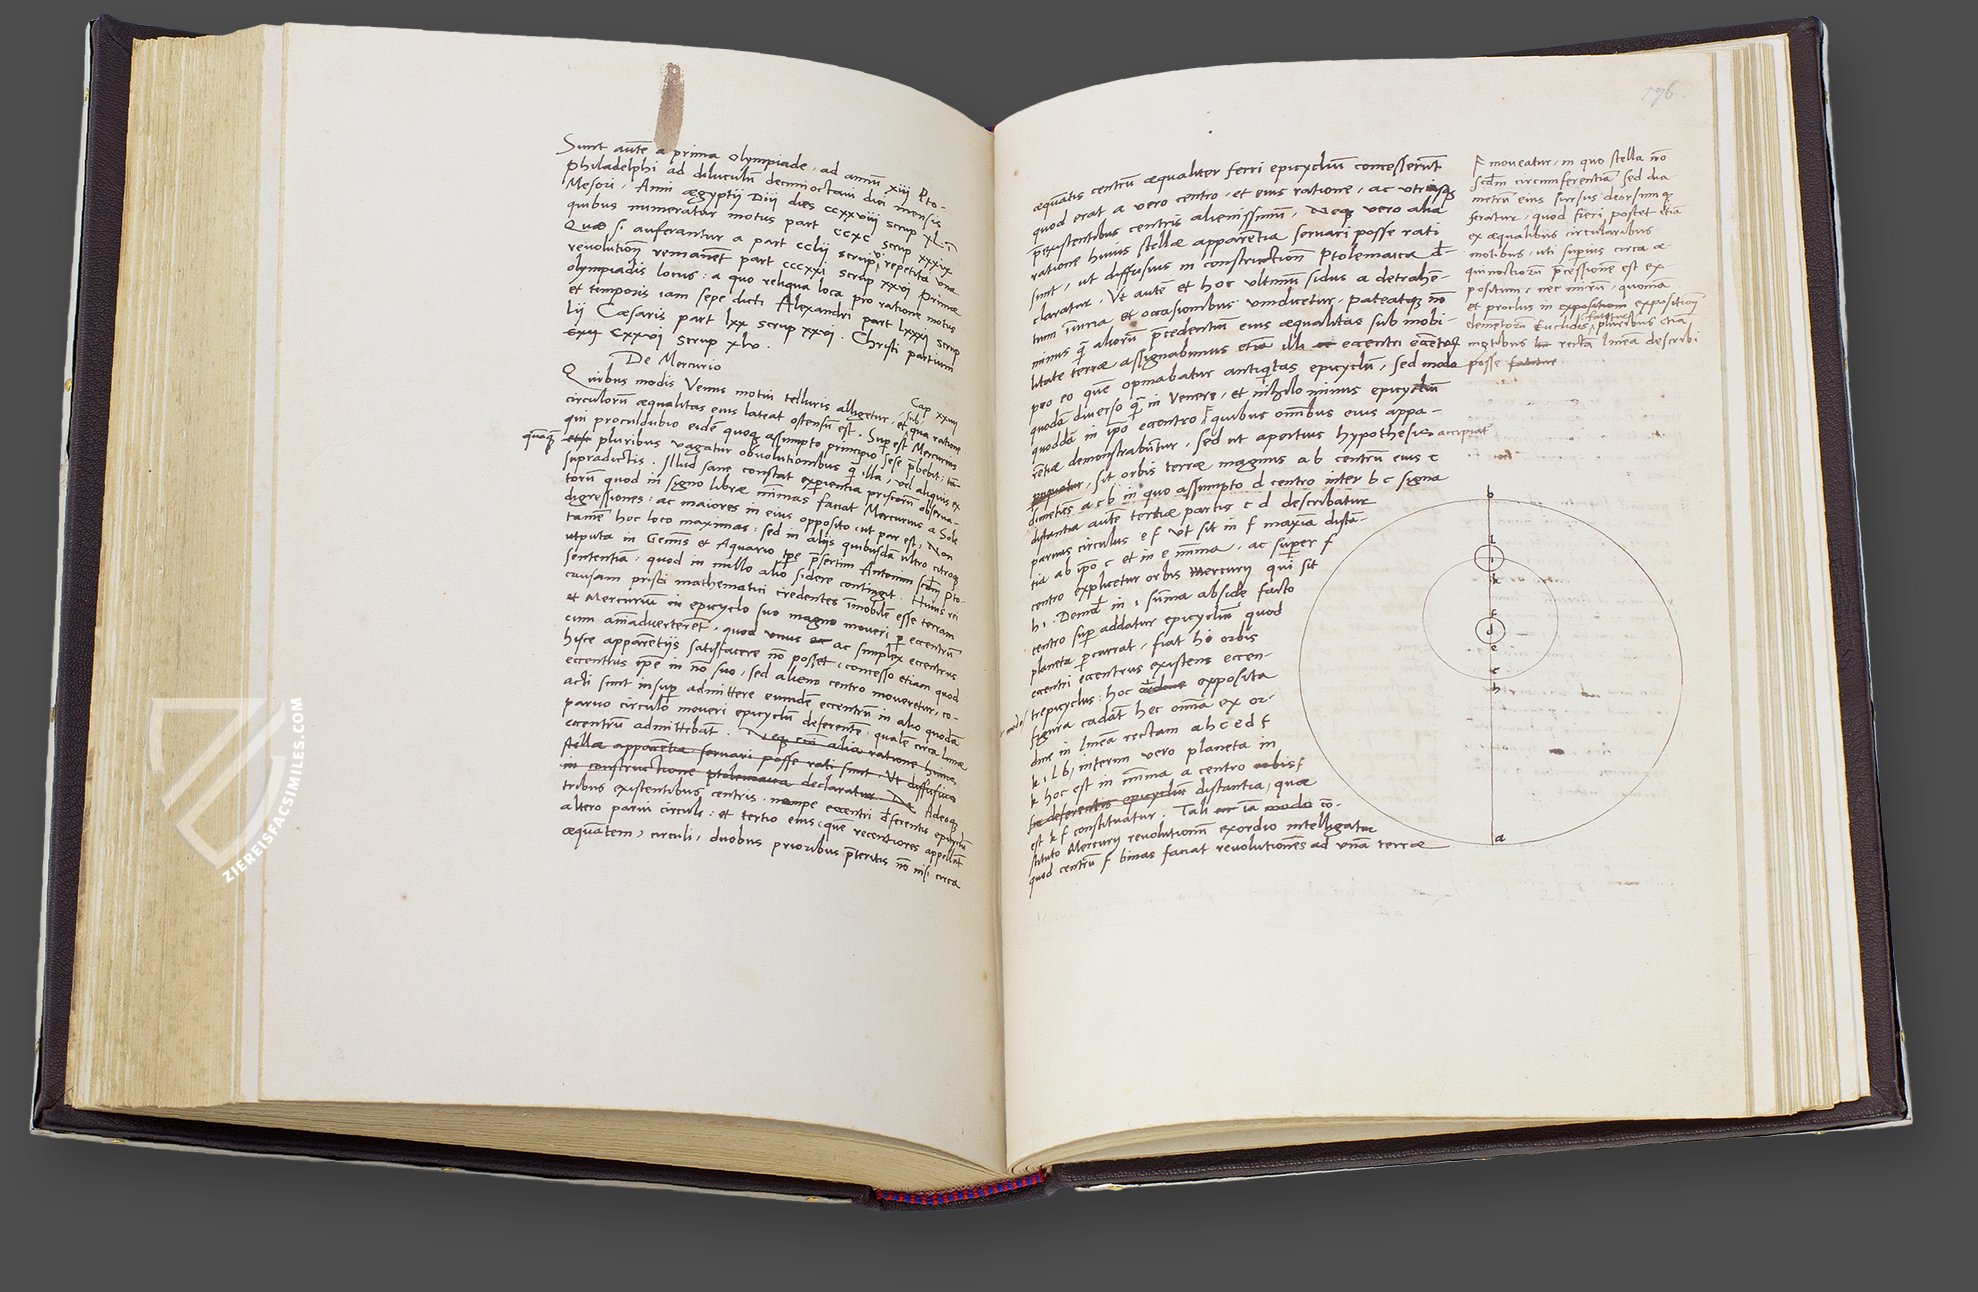 Sunt autē a prima olympiade, ad annū xiij Pto-
Philadelphi ad diluculū decimioctavi diei mensis
Mesori, Anni ægyptii Diij dies ccxxviij scrup xl:
quibus numeratur motus part ccxc scrup xxxix
Quæ si auferantur a part cclij scrup, repetita una
revolutionē remanēt part cccxxi scrup xxvj Primæ
olympiadis locus: a quo reliqua loca pro ratione motus
et temporis iam sepe dicti Alexandri part lxxxj scrup
lij Cæsaris part lxx scrup xxvj. Christi partium
cxxvi scrup xlv.
De Mercurio
Cap xxv
Quibus modis Venus motui telluris alligetur, et sub qua ratione
circulorū æqualitas eius lateat ostensū est. Superest Mercurius
qui proculdubio eidē quoque assumpto principio sese præbebit, tā-
quāquā etsi pluribus vagatur obvolutionibus q̄ illa, vel aliquis ex
supradictis. Illud sane constat experientia priscorū observa-
torū quod in signo libræ minimas faciat Mercurius a Sole
digressiones: ac maiores in eius opposito, ut par est. Non
tamē hoc loco maximas: sed in alijs quibusdā ultro citroque
utputa in Gemīs et Aquario tp̄e p̄sertim Antonini scdm Pto-
sententiā: quod in nullo alio sidere contingit. Huius rei
causam prisci mathematici credentes īmobilē esse terram
et Mercuriū in epicyclo suo magno moveri p̄ eccentrū
cum amadverterēt, quod unus ac simplex eccentrus
hisce apparētijs satisfacere nō posset, concesso etiam quod
eccentrus ip̄e in nō suo, sed alieno centro moveretur, co-
acti sunt insup̄ admittere eundē eccentrū in alio quodā
parvo circulo moveri epicyclū deferentē: qualē circa lunæ
eccentrū admittebāt. Neque enī alia ratione huius
stellæ apparētia servari posse rati sunt. Ut diffusius
in constructione ptolemaica declaratur De Adeoque
tribus existentibus centris, nempe eccentri deferentis epicyclū
altero parvi circuli: et tertio eius, quē recentiores appellāt
æquātem, circuli, duobus prioribus p̄teritis nō nisi circa
176.
æquātis centrū æqualiter ferri epicyclū concesserūt
quod erat a vero centro, et eius ratione, ac utrisque
p̄existentibus centris alienissimū. Neque vero alia
ratione huius stellæ apparētia servari posse rati
sunt, ut diffusius in constructionē Ptolemaica d̄-
claratur. Ut autē et hoc ultimū sidus a detrahē-
tium iniuria et occasionibus vindicetur, pateatque nō
minus q̄ aliorū p̄cedentiū eius æqualitas sub mobi-
litate terræ assignabimus etiā illi eccentri eccētrū
pro eo quē opinabatur antiquitas epicyclū, sed modo
quodā diverso q̄ in Venere, et nihilominus epicyclū
quoddā in ip̄o eccentro F quibus omībus eius appa-
rētiæ demonstrabūtur, sed ut apertius hypothesis accipiatur
sit orbis terræ magnus a b centrū eius c
dimetiēs a c b in quo assumpto d centro inter b c signa
distantia autē tertiæ partis c d describatur
parvus circulus e f ut sit in f maxīa distā-
tia ab ip̄o c et in e mīma, ac super f
centro explicetur orbis mercurij qui sit
h i. Deinde in i sūma abside facto
centro sup addatur epicyclū quod
planeta p̄currat, fiat h i orbis
eccentri eccentrus existens eccen-
trepicyclus: hoc modo exposita
figura cadāt hec omīa ex or-
dine in lineā rectam a h c e d f
k i l b, interim vero planeta in
k hoc est in mīma a centro orbis f
deferentis epicyclū distantia, quæ
est k f constituatur. Tali iā modo cō-
stituto Mercurij revolutionū exordio intelligatur
quod centrū f binas faciat revolutiones ad unā terræ
F moveatur, in quo stella nō
scdm circumferentiā sed dia
metrū eius sursus deorsumque
feratur, quod fieri potest etiā
ex æqualibus circularibus
motibus, uti supius circa æ-
quinoctiorū p̄cessionē est ex-
positum, nec mirū, quoniā
et proclus in expositione expositionē
elemētorū Euclidis fatetur pluribus etiā
motibus rectā lineā describi
posse fatetur
b
l
i
k
f
d
e
c
h
a
ZIEREISFACSIMILES.COM